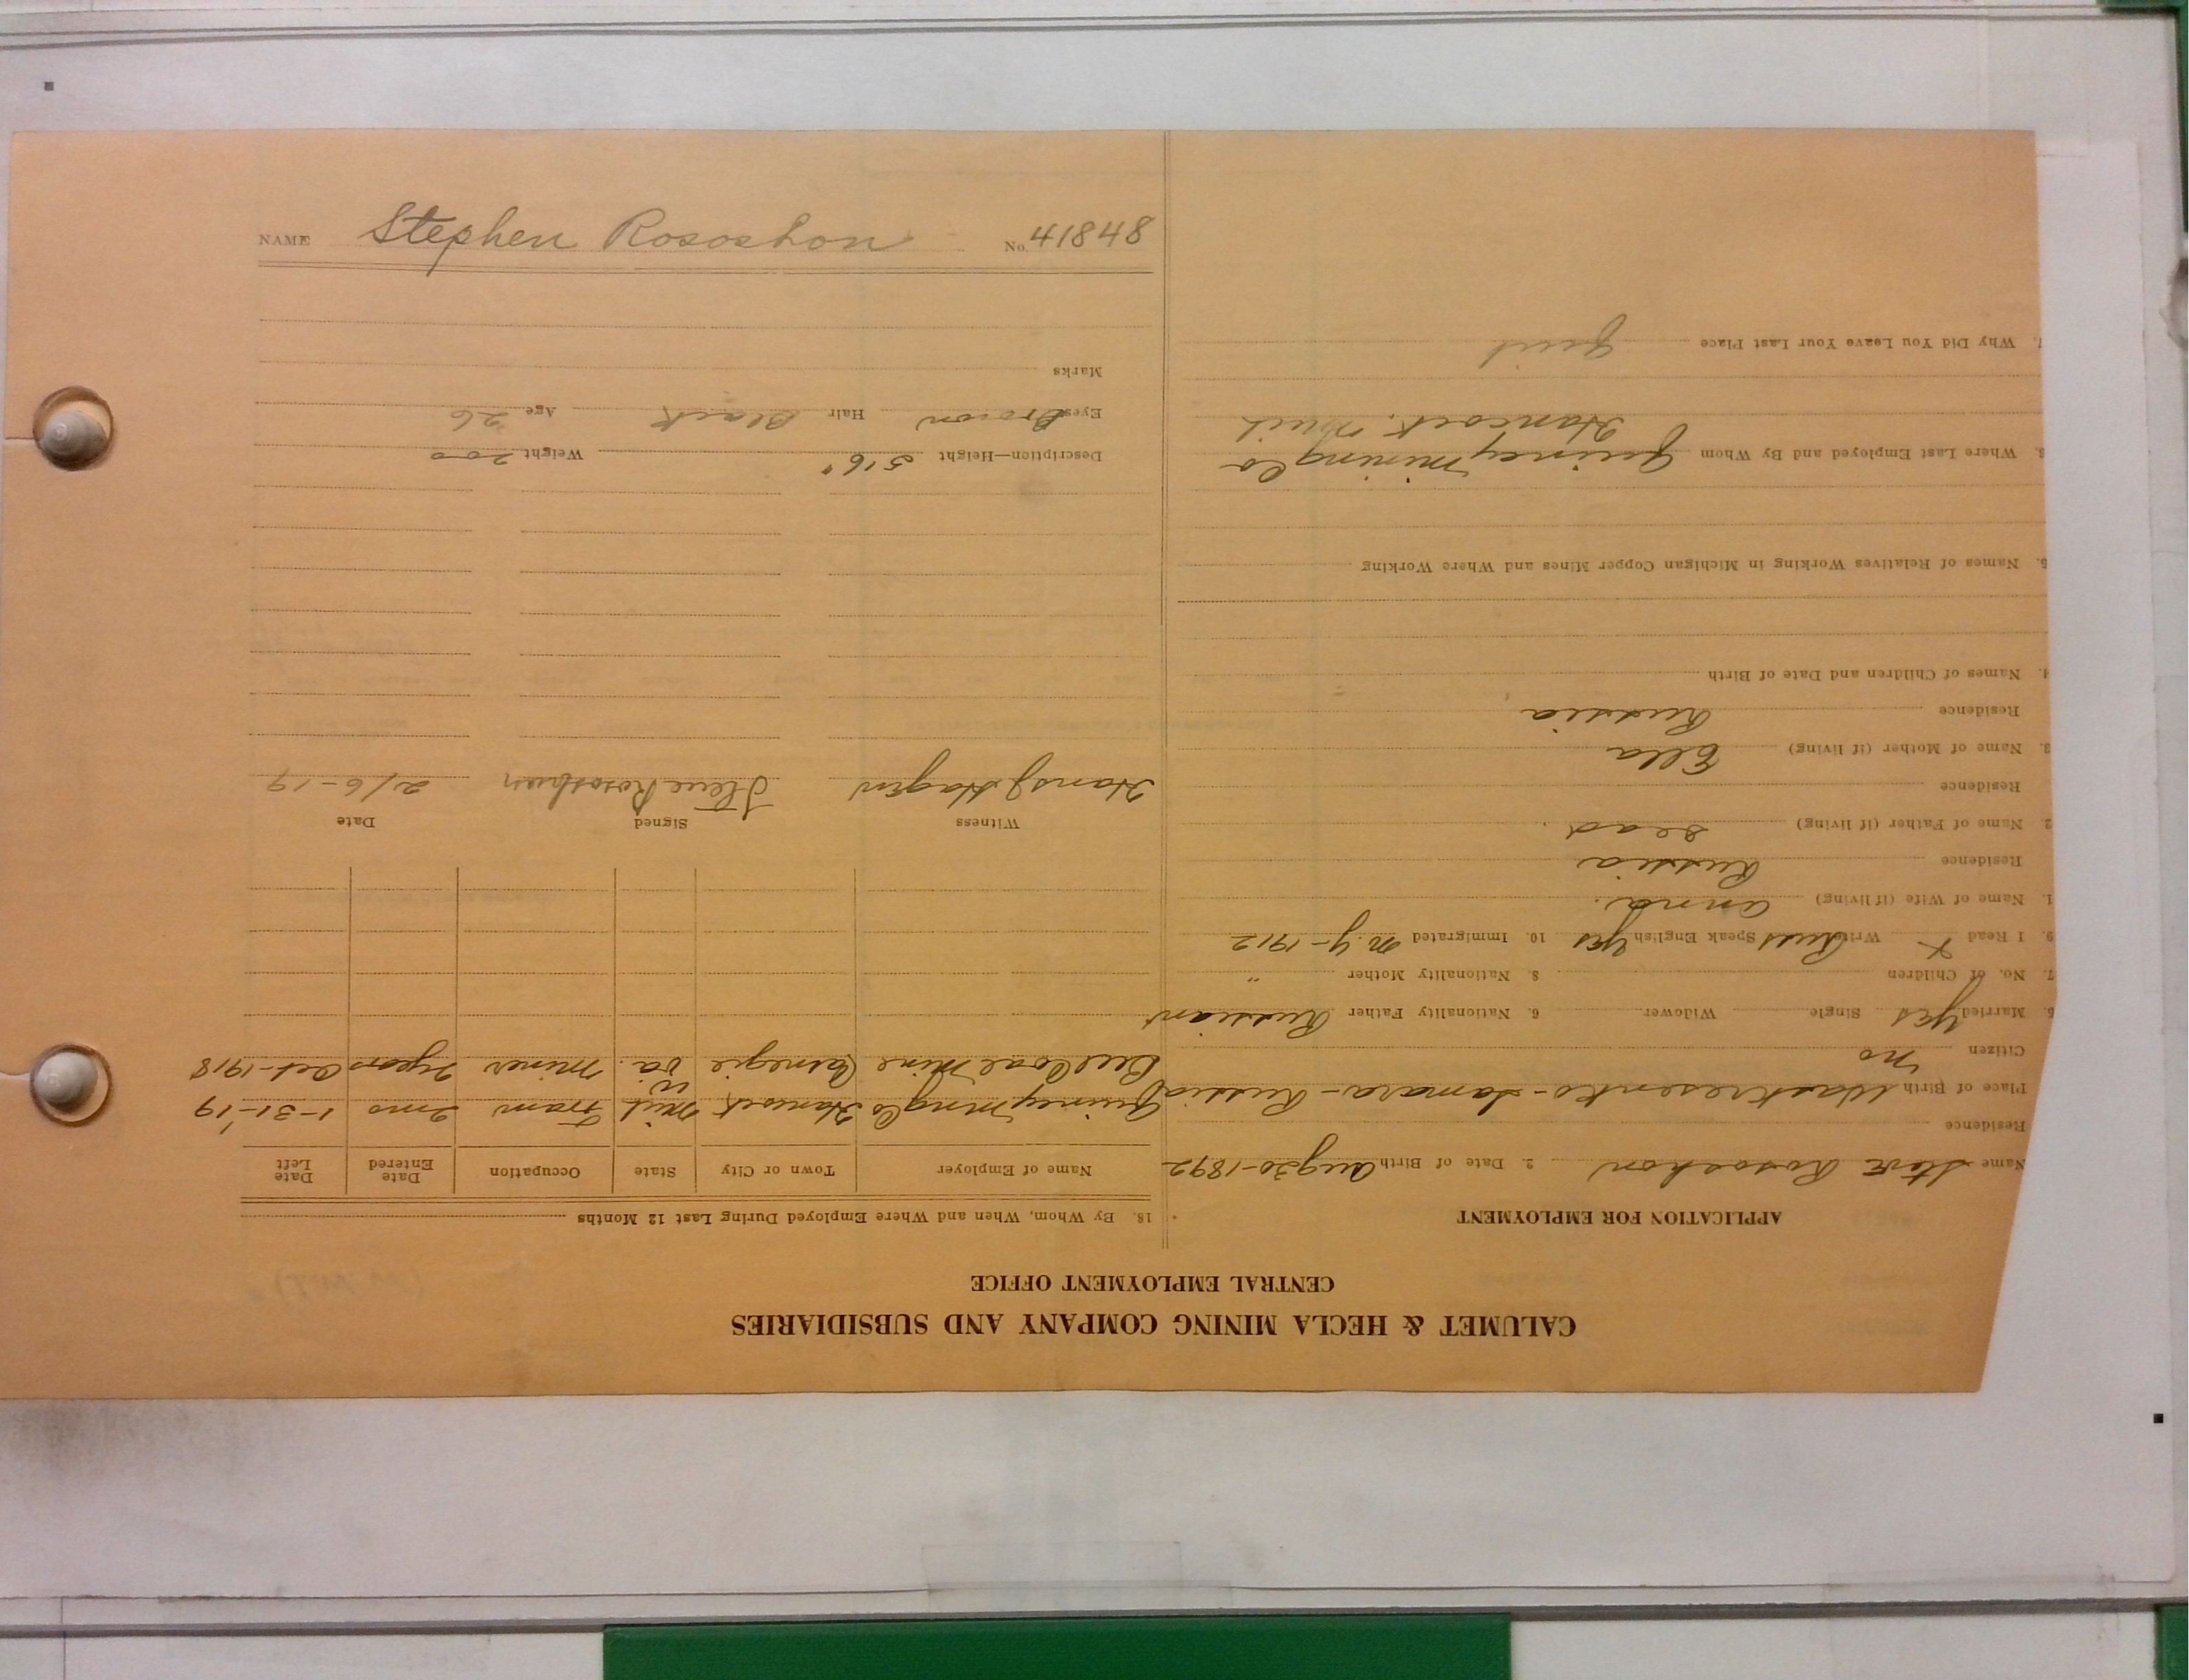 NAME Stephen Rososhon No. 41848
CALUMET & HECLA MINING COMPANY AND SUBSIDIARIES
CENTRAL EMPLOYMENT OFFICE
APPLICATION FOR EMPLOYMENT
Name Steve Rososhon 2. Date of Birth Aug 30-1892
Residence
Place of Birth Waskresenko-Samara-Russia
Citizen no
5. Married yes Single Widower 6. Nationality Father Russian
7. No. of Children 8. Nationality Mother "
9. I Read X Write Russ Speak English yes 10. Immigrated N.Y-1912
1. Name of Wife (if living) Anna.
Residence Russia
2. Name of Father (if living) Dead.
Residence
3. Name of Mother (if living) Ella
Residence Russia
4. Names of Children and Date of Birth
5. Names of Relatives Working in Michigan Copper Mines and Where Working
6. Where Last Employed and By Whom Quincy Mining Co
Hancock. Mich
7. Why Did You Leave Your Last Place Quit
18. By Whom, When and Where Employed During Last 12 Months
Name of Employer Town or City State Occupation Date Entered Date Left
Quincy Mng Co Hancock Mich Tram 2mo 1-31-19
Coal Mine Carnegie W. Va. Miner 2years Oct-1918
Witness Signed Date
Hans J Hagen Steve Rososhon 2/6-19
Description—Height 516" Weight 200
Eyes Brown Hair Black Age 26
Marks